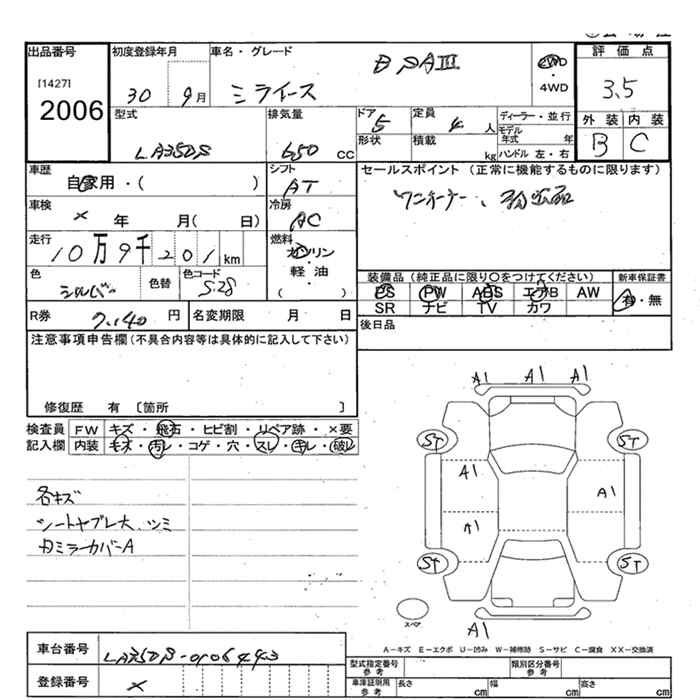 出品番号 初度登録年月 車名・グレード 評価点
[1427]
2006
30 9月 ミライース B SAIII 2WD・4WD 3.5
外装 内装
B C
型式 排気量 ドア 定員 ディーラー・並行
LA350S 650 CC 5 4人 モデル年式 年
形状 積載 kg ハンドル 左・右
車歴 シフト セールスポイント(正常に機能するものに限ります)
自家用・( ) AT ワンオーナー、
車検 冷房
× 年 月( 日) AC
走行 燃料
10万9千201km ガソリン
軽・油
( )
色 色替 色コード
シルバー S28
装備品(純正品に限り○をつけてください) 新車保証書
PS PW ABS エアB AW 有・無
SR ナビ TV カワ
R券 7,140円 名変期限 月 日
後日品
注意事項申告欄(不具合内容等は具体的に記入して下さい)
修復歴 有 〔箇所 〕
検査員 FW キズ・飛石・ヒビ割・リペア跡・×要
記入欄 内装 キズ・汚レ・コゲ・穴・スレ・キレ・破レ
各キズ
シートヤブレ大、シミ
ミラーカバーA
A1 A1 A1
ST ST
A1 A1
A1
ST ST
スペア
A1
A-キズ E-エクボ U-凹み W-補修跡 S-サビ C-腐食 XX-交換済
車台番号 LA350S-
登録番号 ×
型式指定番号 参考 類別区分番号 参考
車庫証明用 参考 長さ cm 幅 cm 高さ cm